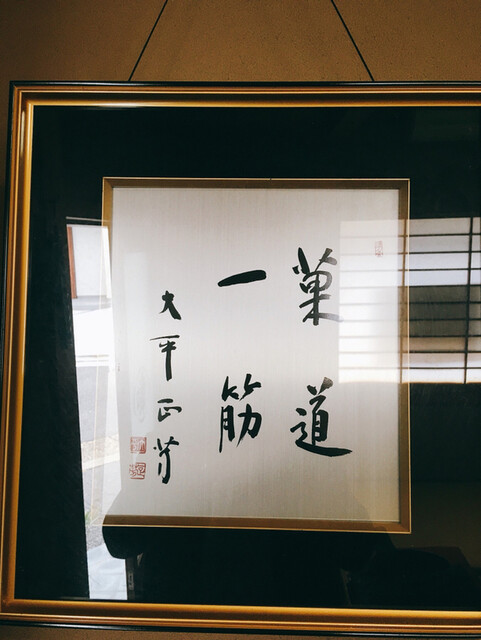 菓道
一筋
大平正芳